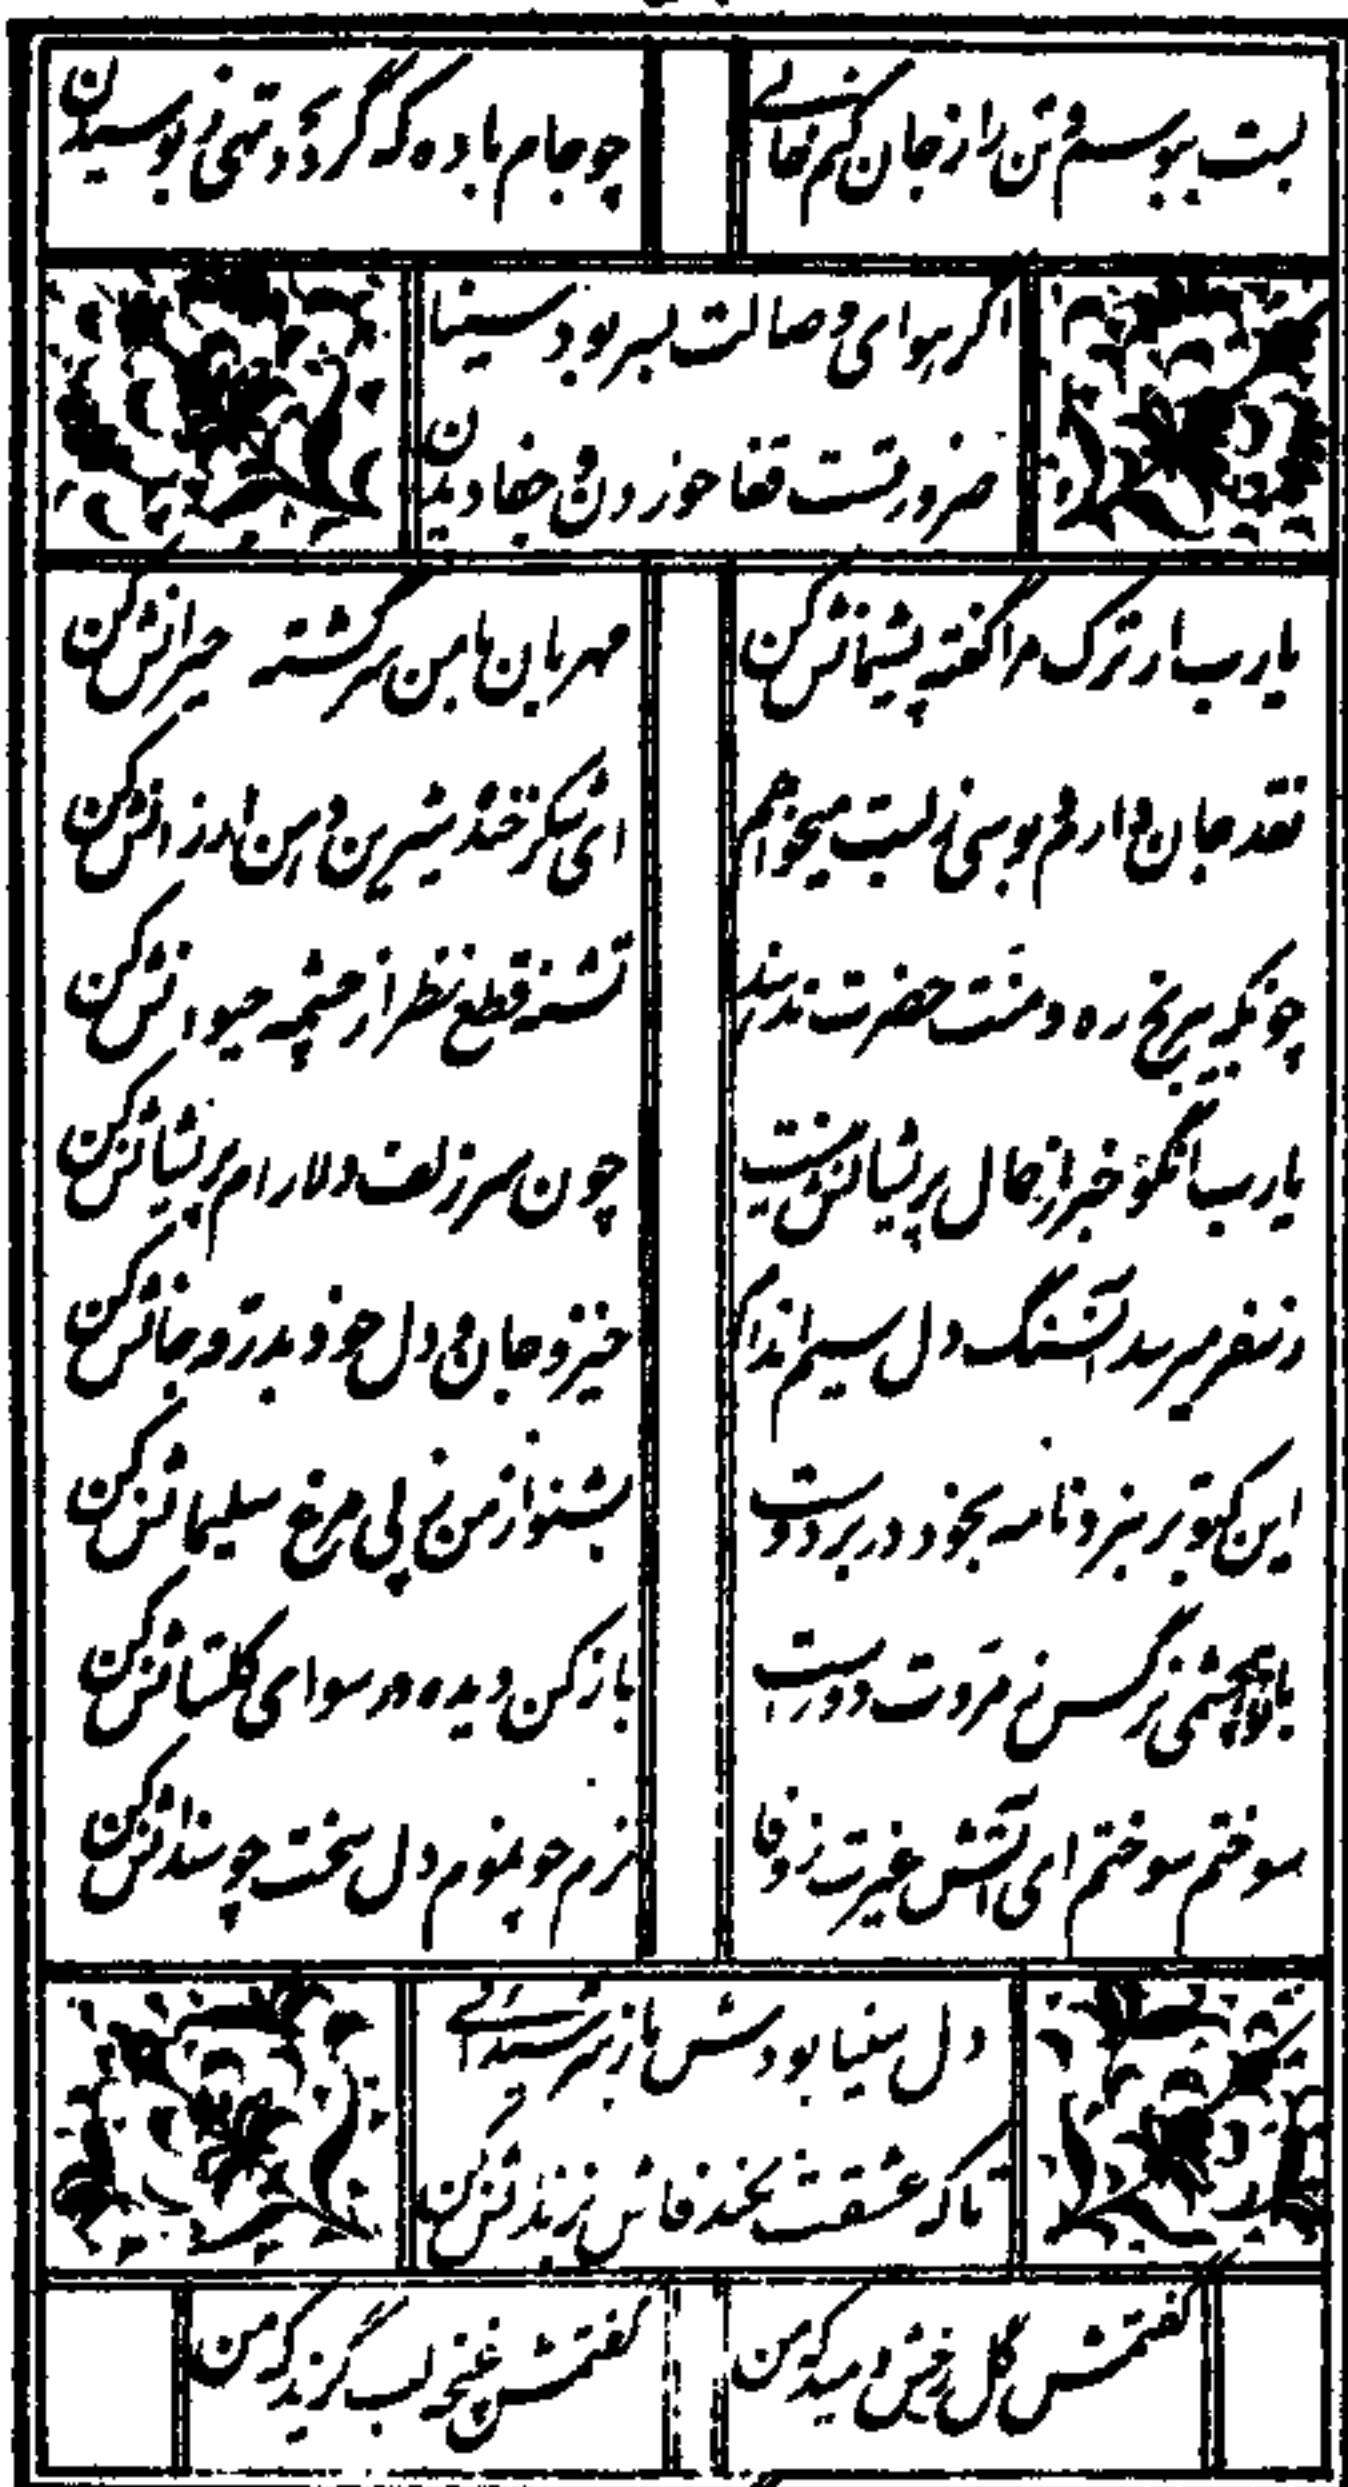 لبت ببوسم و تن را ز جان کنم خالی
چو جام باده که گردد تهی ز بوسیدن
اگر هوای وصالت بسر بود سینا
ضرورتست قفا خوردن و جفا دیدن
یارب ار ترک مرا گفته پشیمانش کن
مهربان با من سرگشته حیرانش کن
نقد جان دارم و بوسی ز لبت میخواهم
ای شکر خنده شیرین و این ارزانش کن
چونکه بیرنج ره و منت حضرت ندهند
تشنه قطع نظر از چشمه حیوانش کن
یارب آنکو خبر از حال پریشانش نیست
چون سر زلف دلارام پریشانش کن
از سفر میرسد آن سنگ دل سیم اندام
خیز و جان و دل خود بدرقه جانش کن
این کبوتر نبرد نامه بخود در بر دوست
بشنو از من ز پی مرغ سلیمانش کن
چشمی نرگس ز مروت دورست
باز کن دیده و رسوای گلستانش کن
سوختم سوختم ای آتش غیرت ز وفا
نرم چو مومم دل سخت چو سندانش کن
دل سینا بودش باز سر شیدائی
تا که عشقت نکند فاش بزندانش کن
گفتمش گل ز رخش دمید که من
گفتمش غنچه لب گزید که من